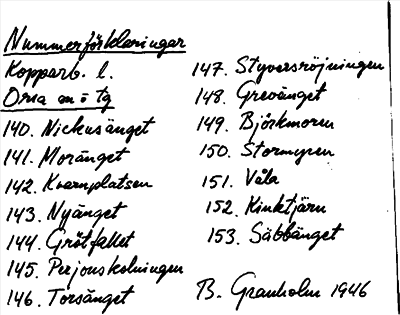 Nummerförklaringar
Kopparb. l.
Orsa
140. Nickusänget
141. Moränget
142. Kvarnplatsen
143. Nyänget
144. Grötfallet
145. Perjonskolningen
146. Torsänget
147. Styversröjningen
148. Grevänget
149. Björkmoren
150. Stormyren
151. Våla
152. Kinktjärn
153. Säbbänget
B. Granholm 1946